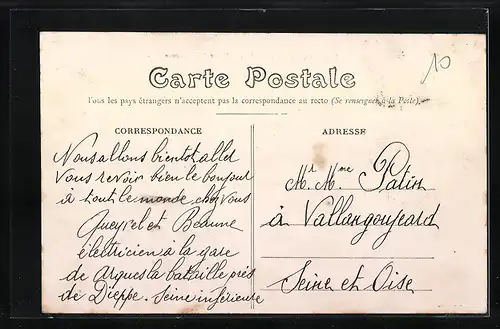 10
Carte Postale
Tous les pays étrangers n'acceptent pas la correspondance au recto (Se renseigner à la Poste).
CORRESPONDANCE
Nous allons bientot aller
vous revoir bien le bonjour
à tout le monde chez vous
Queyrel et Beaune
électricien à la gare
de Arques la bataille près
de Dieppe. Seine inférieure
ADRESSE
Mr. Mme Patin
à Vallangoujeard
Seine et Oise